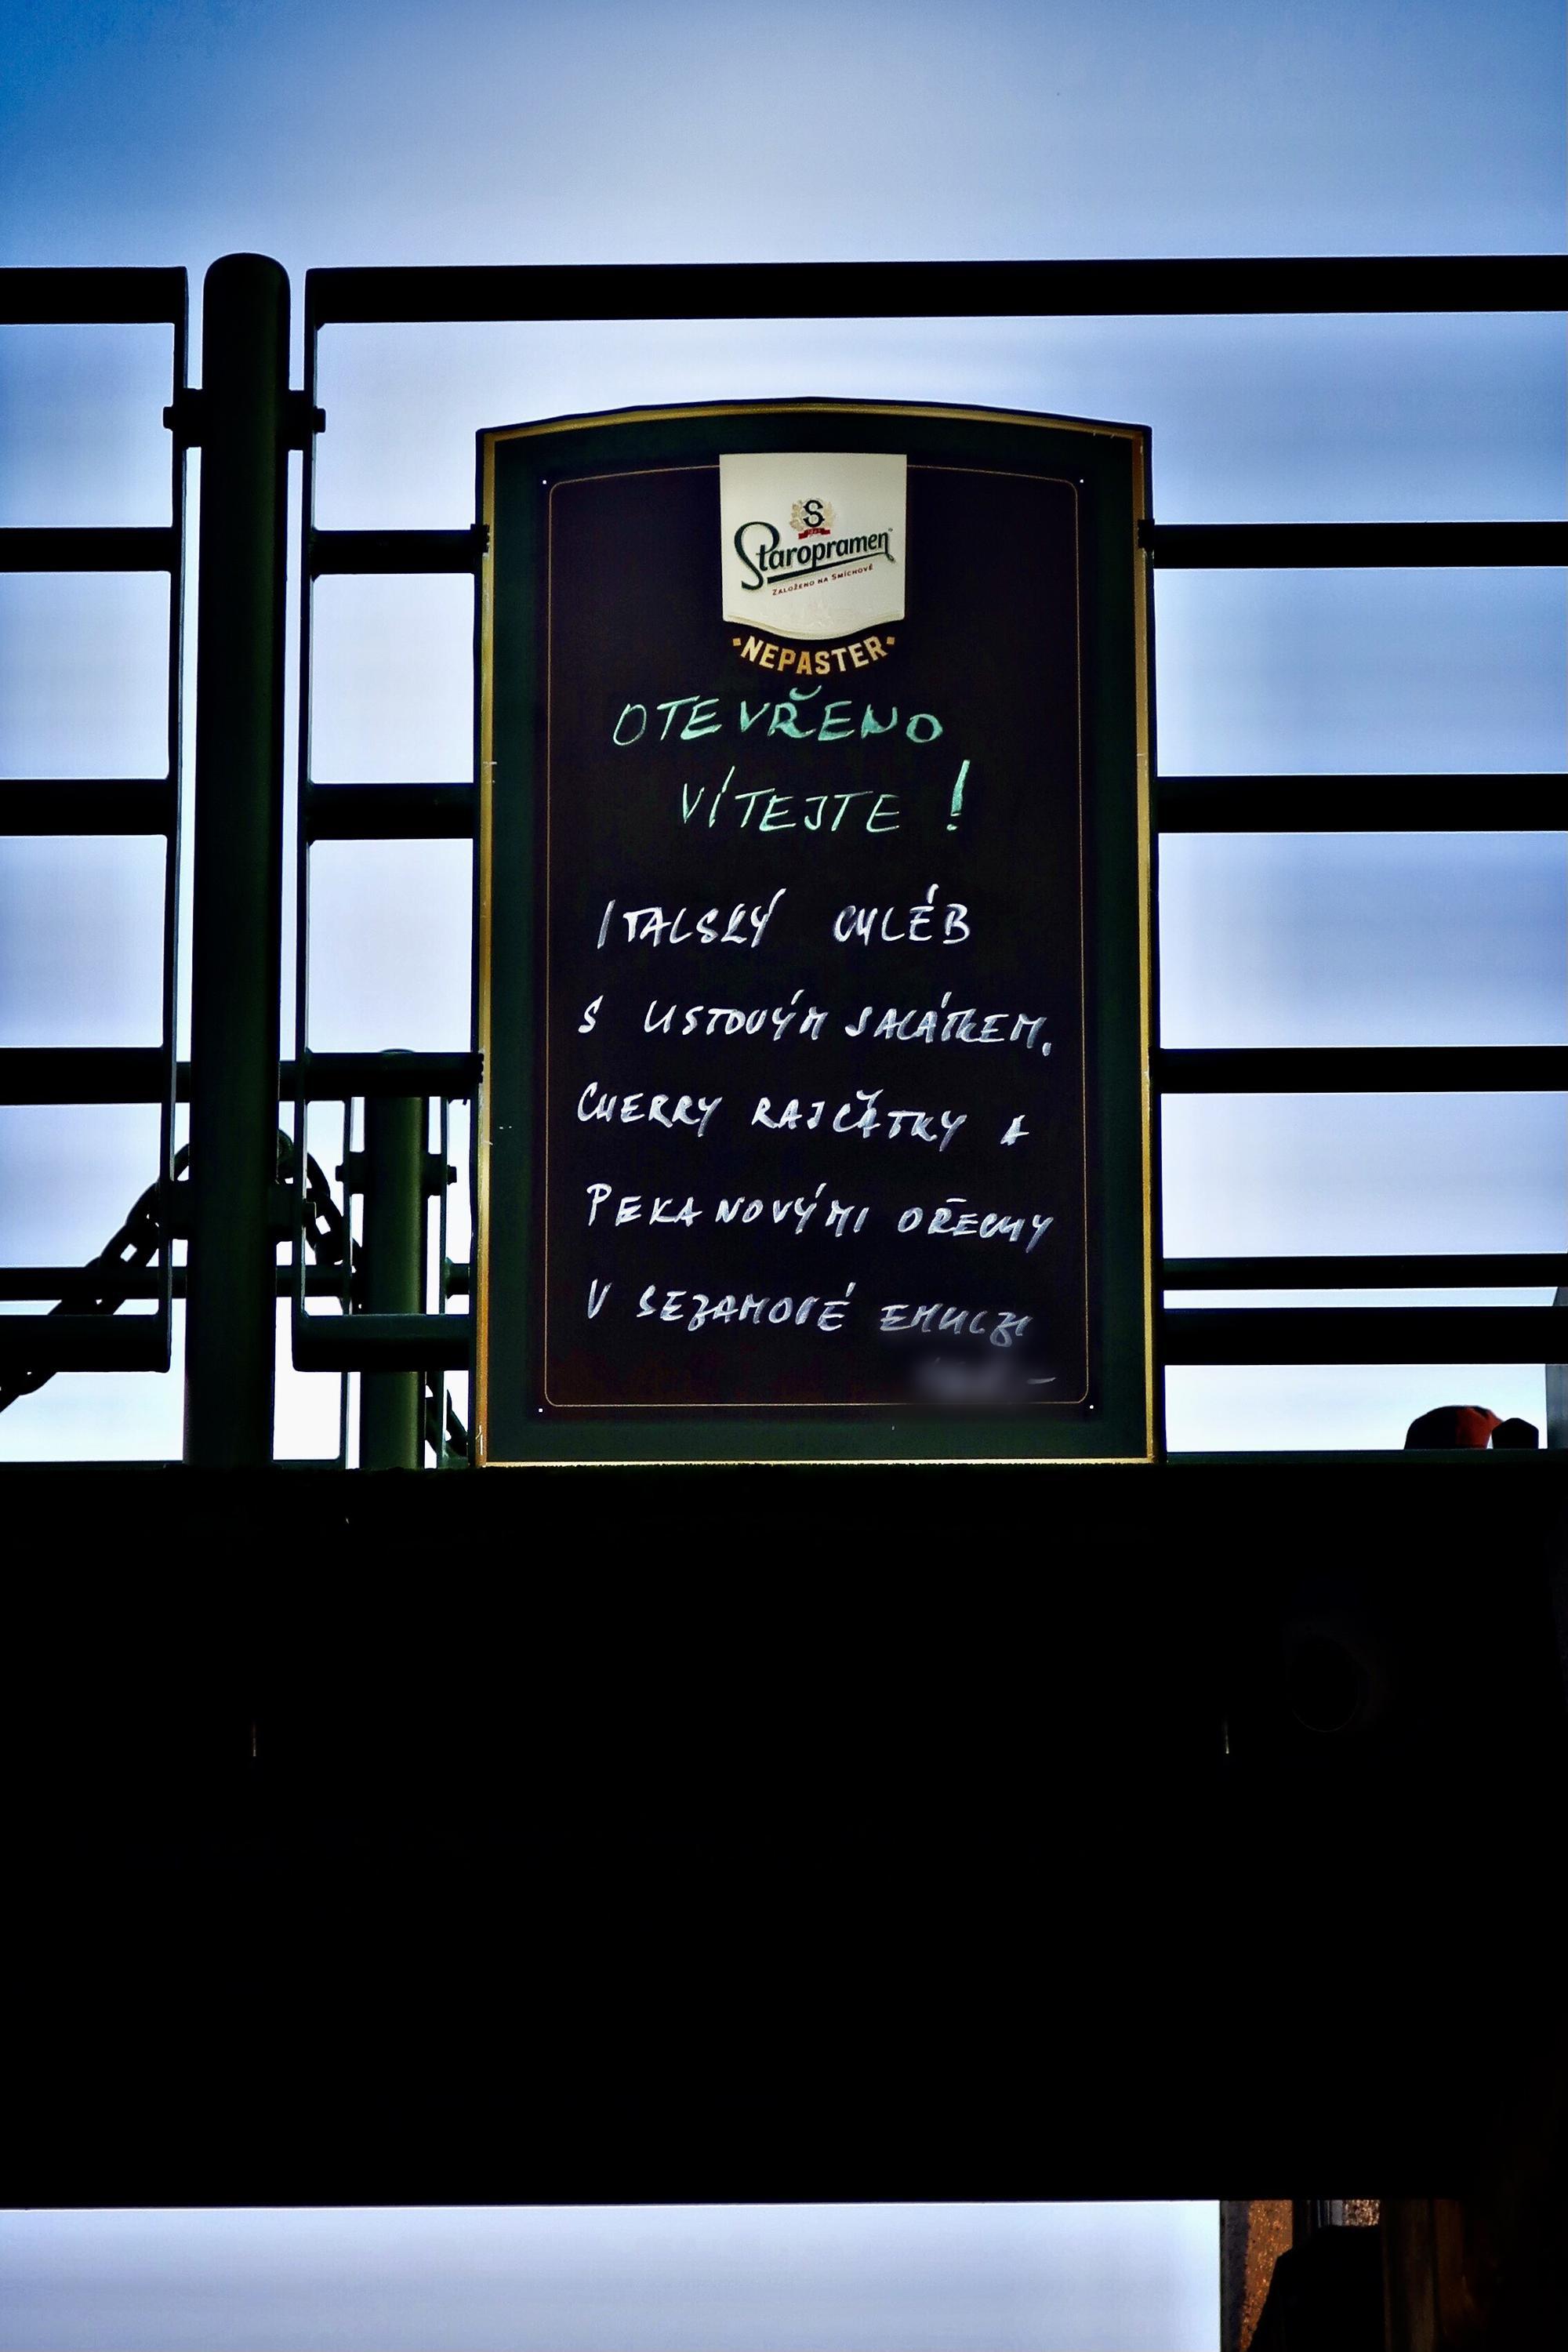 S
Staropramen
ZALOŽENO NA SMÍCHOVĚ
·NEPASTER·
OTEVŘENO
VÍTEJTE !
ITALSKÝ CHLÉB
S LISTOVÝM SALÁTKEM,
CHERRY RAJČÁTKY A
PEKANOVÝMI OŘECHY
V SEZAMOVÉ EMULZI